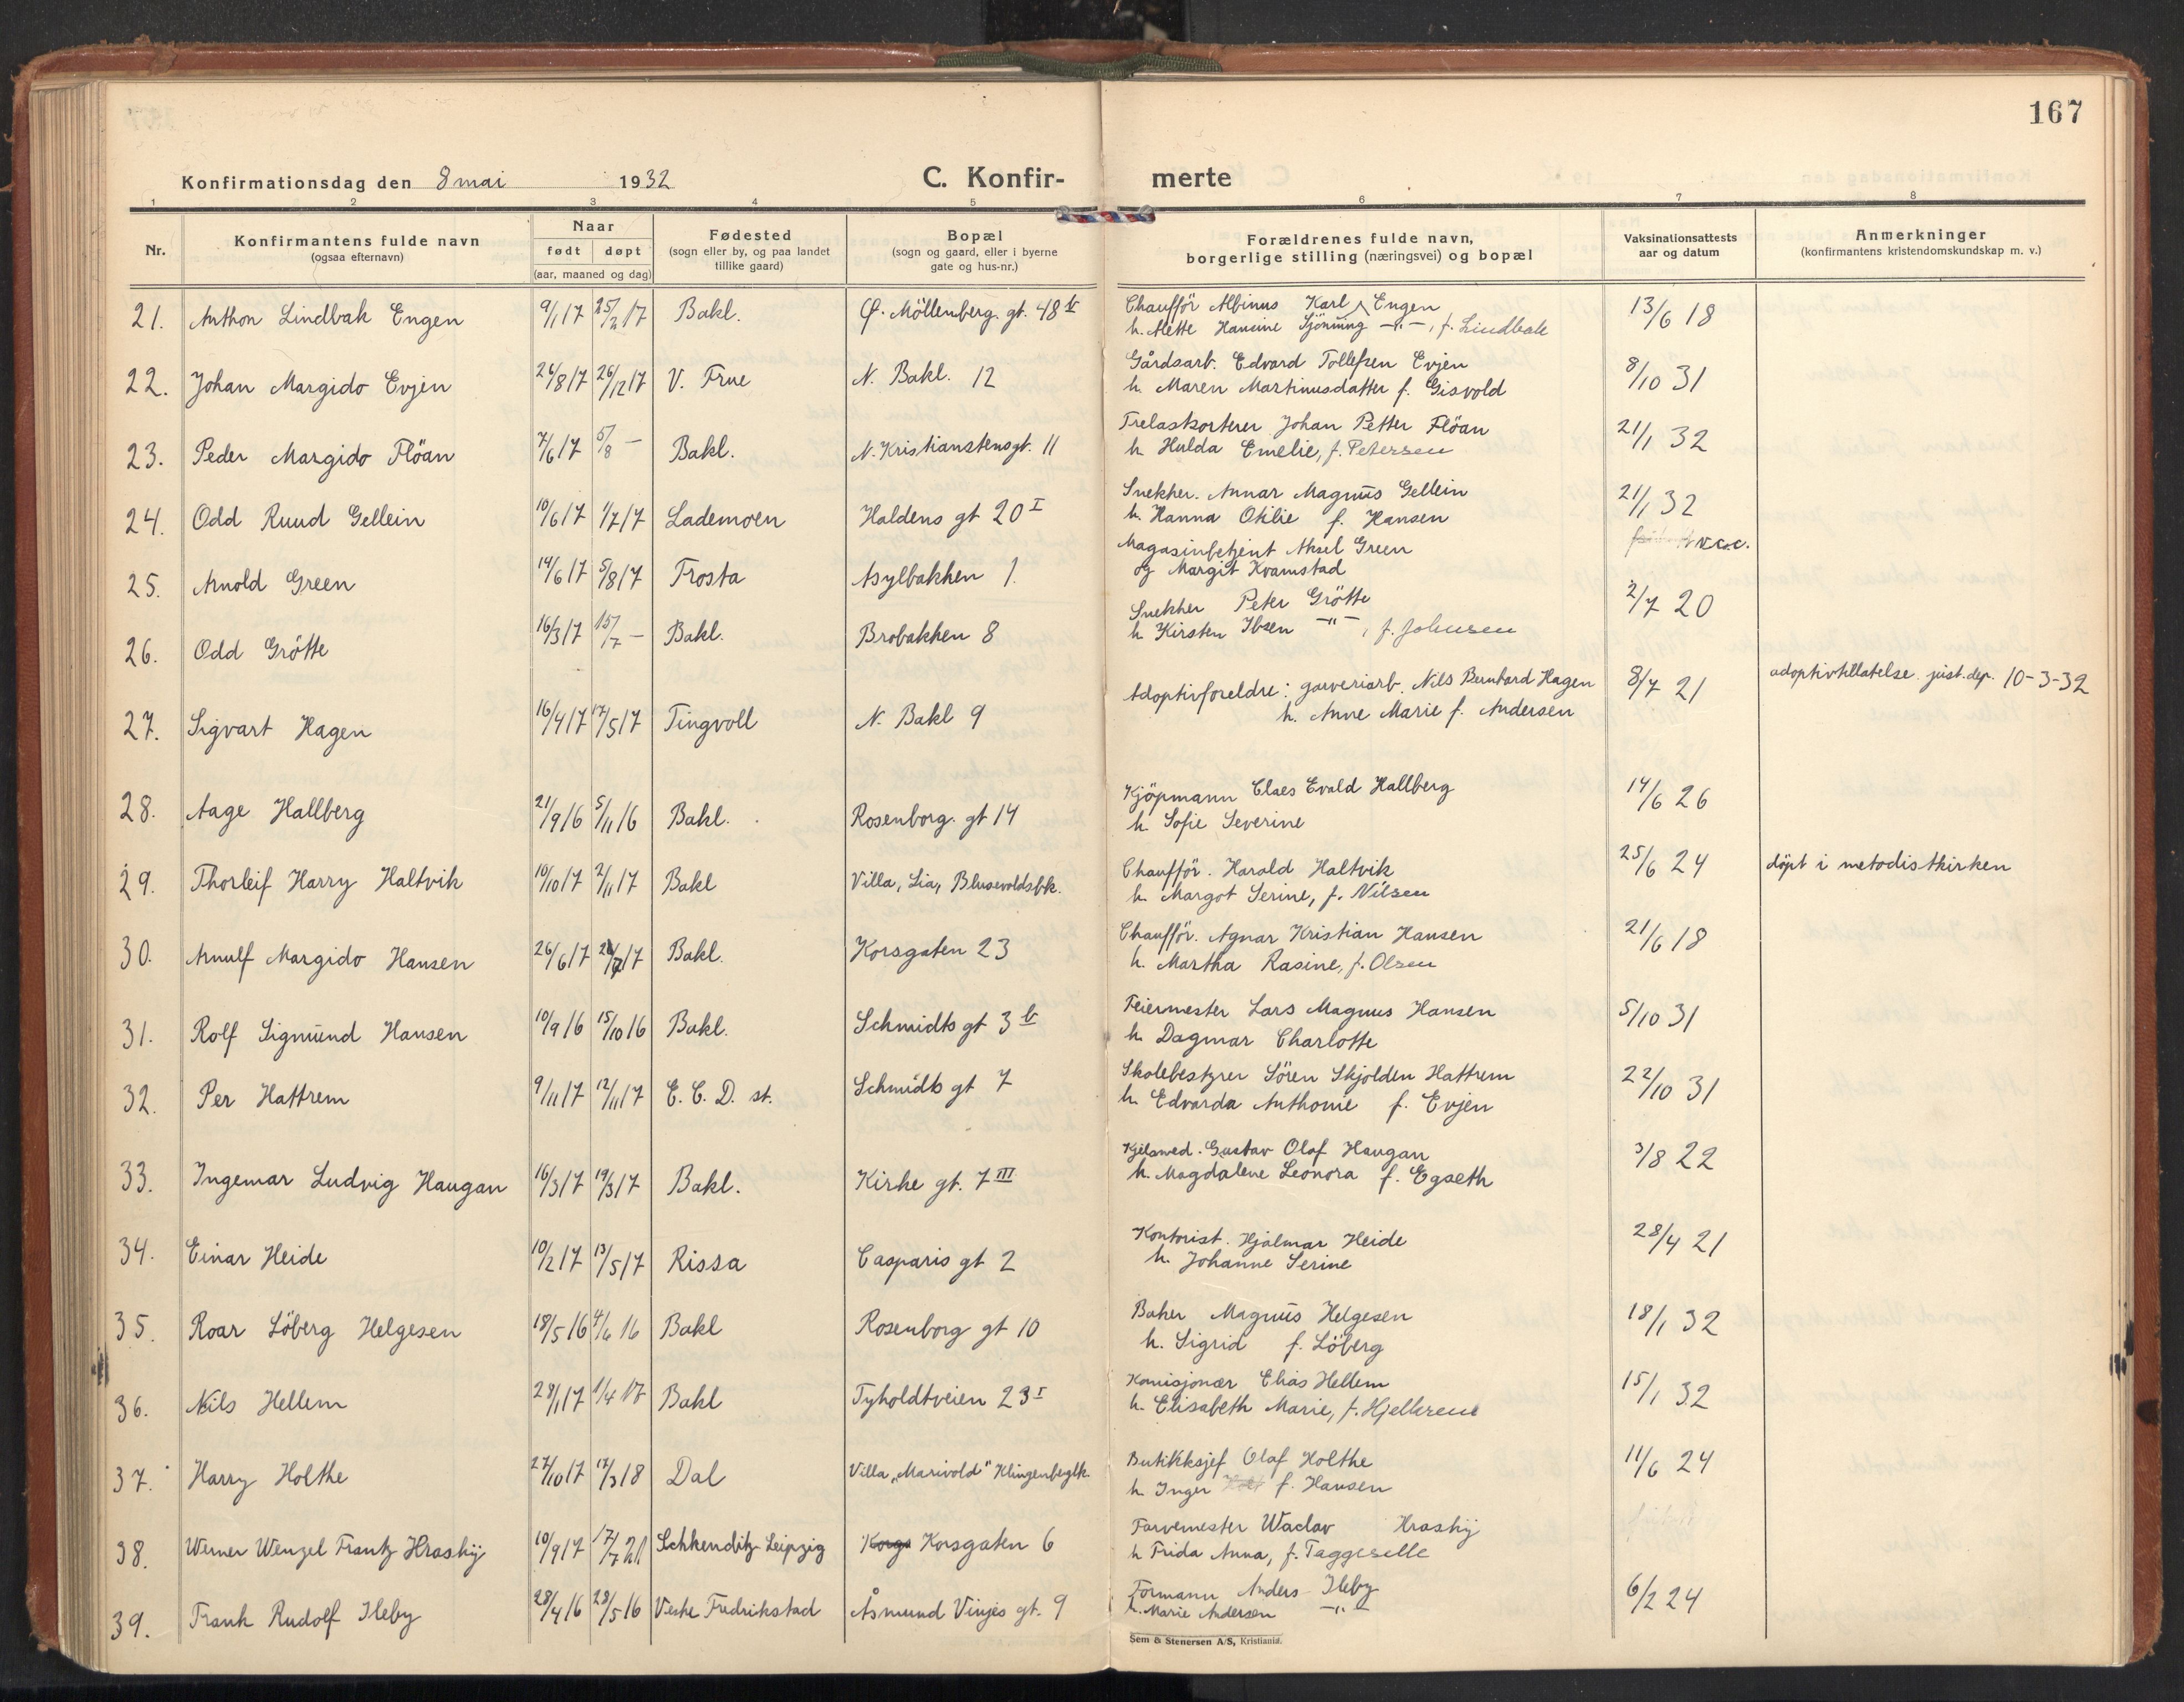 167
Konfirmationsdag den 8 mai 1932 C. Konfir- merte
1 2 3 4 5 6 7 8
Nr. Konfirmantens fulde navn (ogsaa efternavn) Naar født døpt (aar, maaned og dag) Fødested (sogn eller by, og paa landet tillike gaard) Bopæl (sogn og gaard, eller i byerne gate og hus-nr.) Forældrenes fulde navn, borgerlige stilling (næringsvei) og bopæl Vaksinationsattests aar og datum Anmerkninger (konfirmantens kristendomskundskap m. v.)
21. Anthon Lindbak Engen 9/1 17 25/2 17 Bakl. Ø. Möllenberg. gt. 48 b Chaufför Albinus Karl Engen 13/6 18
h. Alette Hansine Sjönning -"-, f. Lindbak
22. Johan Margido Evjen 26/8 17 26/12 17 V. Frue N. Bakl. 12 Gårdsarb. Edvard Tollefsen Evjen 8/10 31
h. Maren Martinusdatter f. Gisvold
23. Peder Margido Flöan 7/6 17 5/8 — Bakl. N. Kristianstensgt. 11 Trelastsorterer Johan Petter Flöan 21/1 32
h. Hulda Emelie, f. Petersen
24. Odd Ruud Gellein 10/6 17 1/7 17 Lademoen Haldens gt 20 I Snekker. Annar Magnus Gellein 21/1 32
h. Hanna Otilie f. Hansen
25. Arnold Green 14/6 17 5/8 17 Frosta Asylbakken 1. Magasinbetjent Aksel Green v.c.c.
og Margit Kvamstad
26. Odd Grötte 16/3 17 15/7 — Bakl. Brobakken 8 Snekker Peter Grötte 2/7 20
h Kirsten Ibsen -"-, f. Johnsen
27. Sigvart Hagen 16/4 17 17/5 17 Tingvoll N. Bakl 9 Adoptivforeldre: garveriarb. Nils Bernhard Hagen 8/7 21 adoptivtillatelse just. dep. 10-3-32
h. Anne Marie f. Andersen
28. Aage Hallberg 21/9 16 5/11 16 Bakl. Rosenborg. gt 14 Kjöpmann Claes Evald Hallberg 14/6 26
h. Sofie Severine
29. Thorleif Harry Haltvik 10/10 17 2/11 17 Bakl Villa, Lia, Blusevoldsbk. Chaufför. Harald Haltvik 25/6 24 döpt i metodistkirken
h. Margot Serine, f. Nilsen
30. Arnulf Margido Hansen 26/6 17 17 Bakl. Korsgaten 23 Chaufför. Agnar Kristian Hansen 21/6 18
h. Martha Rasine, f. Olsen
31. Rolf Sigmund Hansen 10/9 16 15/10 16 Bakl. Schmidts gt 3 b Feiermester Lars Magnus Hansen 5/10 31
h. Dagmar Charlotte
32. Per Hattrem 9/11 17 12/11 17 E. C. D. st. Schmidts gt 7 Skolebestyrer Sören Skjolden Hattrem 22/10 31
h. Edvarda Anthonie f. Evjen
33. Ingemar Ludvig Haugan 16/3 17 19/3 17 Bakl. Kirke gt. 7 III Kjelsmed. Gustav Olaf Haugan 3/8 22
h. Magdalene Leonora f. Egseth
34. Einar Heide 10/2 17 13/5 17 Rissa Casparis gt 2 Kontorist. Hjalmar Heide 28/4 21
h. Johanne Serine
35. Roar Löberg Helgesen 18/5 16 4/6 16 Bakl Rosenborg gt 10 Baker Magnus Helgesen 18/1 32
h. Sigrid f. Löberg
36. Nils Hellem 28/1 17 1/4 17 Bakl Tyholdtveien 23 I Komisjonær Elias Hellem 15/1 32
h. Elisabeth Marie, f. Hjelkrem
37. Harry Holthe 27/10 17 17/3 18 Dal Villa "Marivold" Klingenbergbk. Butikksjef Olaf Holthe 11/6 24
h. Inger f. Hansen
38. Werner Wenzel Frantz Hrasky 10/9 17 17/7 21 Schkenditz Leipzig Korsgaten 6 Farvemester Waclav Hrasky
h Frida Anna, f. Taggeselle
39. Frank Rudolf Ileby 28/4 16 28/5 16 Vestre Fredrikstad Åsmund Vinjes gt. 9 Formann Anders Ileby 6/2 24
h. Marie Andersen -"-
Sem & Stenersen A/S, Kristiania.